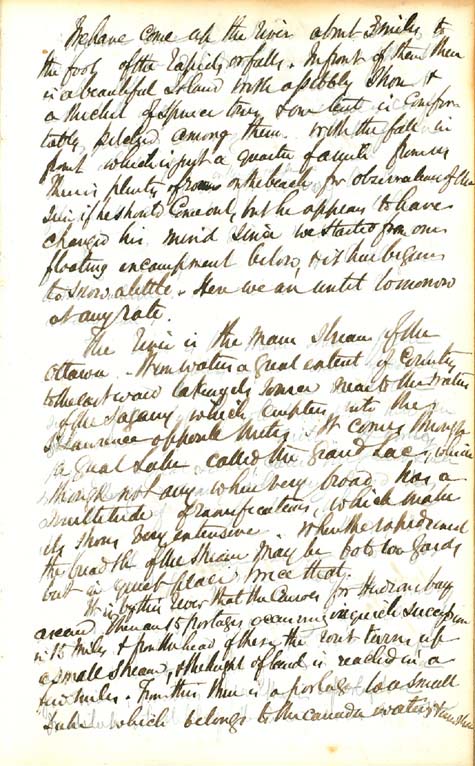 We have come up the River about 3 miles to
the foot of the Rapids or falls. In front of them there
is a beautiful Island with a pebbly Shore &
a thicket of Spruce trees & our tent is Comfor
tably pitched among them. With the falls in
front which is just a quarter of a mile
there is plenty of room on the beach for observation of the
Sun if he should Come out, but he appears to have
changed his mind Since we started from our
floating encampment below, & it has begun
to Snow a little. Here we are until tomorrow
at any rate.
The River is the main Stream of the
Ottawa. Them waters a great extent of Country
to the eastward taking its Source near to the waters
of the Sagany, which empties into the
St Laurence opposite Metis. It Comes through
a great Lake called the Grand Lac, which
though not any where very broad has a
multitude of ramifications, which make
its shores very extensive. Where the rapids end
the breadth of the Stream may be 60 to 100 yards
but in quiet places twice that.
It is by this River that the Canoes for Hudsons bay
ascend. There are 15 portages occurring in quick succession
in 15 miles & from the head of these the rout turns up
a small Stream, & the height of land is reached in a
few miles. From this there is a portage to a small
Lake which belongs to the Canada waters &